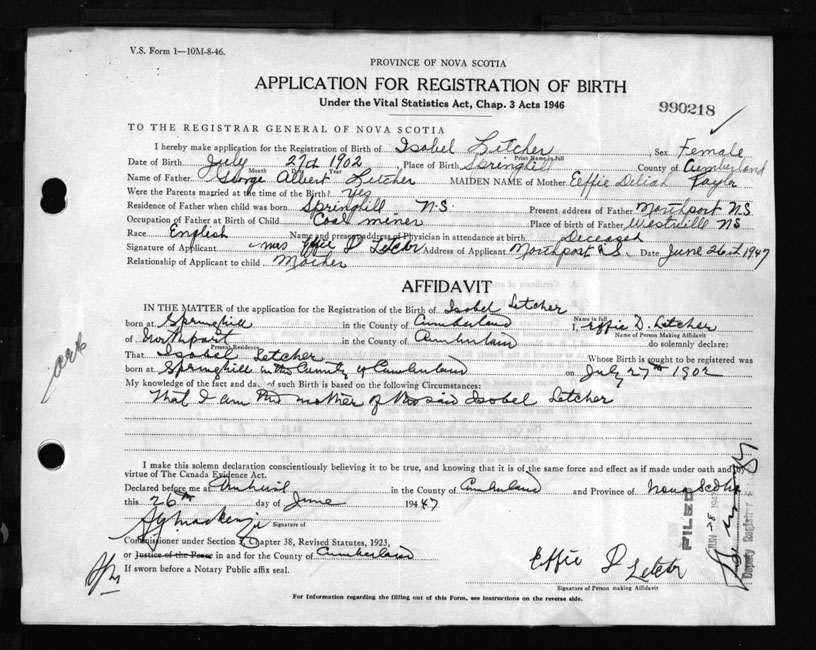 V.S. Form 1—10M-8-46.
PROVINCE OF NOVA SCOTIA
APPLICATION FOR REGISTRATION OF BIRTH
Under the Vital Statistics Act, Chap. 3 Acts 1946
990218
TO THE REGISTRAR GENERAL OF NOVA SCOTIA
I hereby make application for the Registration of Birth of Isobel Letcher, Sex Female
Print Name in full
Date of Birth July 27th 1902 Place of Birth Springhill County of Cumberland
Month Day Year
Name of Father George Albert Letcher MAIDEN NAME of Mother Eeffie Deliah Taylor
Were the Parents married at the time of the Birth? Yes
Residence of Father when child was born Springhill N-S. Present address of Father Northport N.S.
Occupation of Father at Birth of Child Coal miner Place of birth of Father Westville NS
Race English Name and present address of Physician in attendance at birth Deceased
Signature of Applicant Mrs Effie D Letcher Address of Applicant Northport N.S. Date June 26th 1947
Relationship of Applicant to child Mother
AFFIDAVIT
IN THE MATTER of the application for the Registration of the Birth of Isobel Letcher
Name in full
born at Springhill in the County of Cumberland I, Effie D. Letcher
Name of Person Making Affidavit
of Northport in the County of Cumberland do solemnly declare:
Present Residence
That Isobel Letcher Whose Birth is sought to be registered was
born at Springhill in the County of Cumberland on July 27th 1902
My knowledge of the fact and da of such Birth is based on the following Circumstances:
That I am the mother of the said Isobel Letcher
I make this solemn declaration conscientiously believing it to be true, and knowing that it is of the same force and effect as if made under oath and by
virtue of The Canada Evidence Act.
Declared before me at Amherst in the County of Cumberland and Province of Nova Scotia
this 26th day of June 1947
Signature of
Commissioner under Section 3, Chapter 38, Revised Statutes, 1923,
or Justice of the Peace in and for the County of Cumberland
If sworn before a Notary Public affix seal.
Effie D Letcher
Signature of Person making Affidavit
FILED
Deputy Registrar
For Information regarding the filling out of this Form, see instructions on the reverse side.